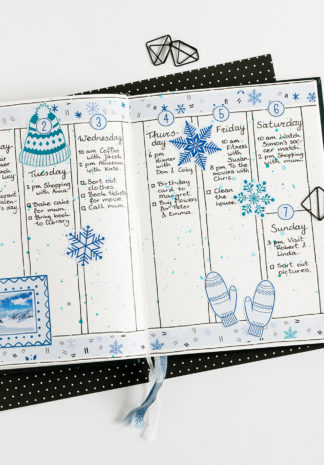 2
Tuesday
2 pm Shopping
Bake cake
for mum.
Bring book
to library
3
Wednesday
10 am Coffee
with Jacob
2 pm museum
with Kate.
Sort out
clothes.
Book tickets
for movie.
Call mum.
4
Thurs-
day
6 pm
dinner
with
Don & Coby.
Birthday
card for
Margaret.
Buy flowers
for Peter
& Emma.
5
Friday
10 am
Fitness
with
Susan.
7 pm To the
movies with
Chris.
Clean
the
house.
6
Saturday
10 am Watch
Simon's soc-
cer match.
2 pm Shopping
with mum.
7
Sunday
3 pm Visit
Robert &
Linda.
Sort out
pictures.